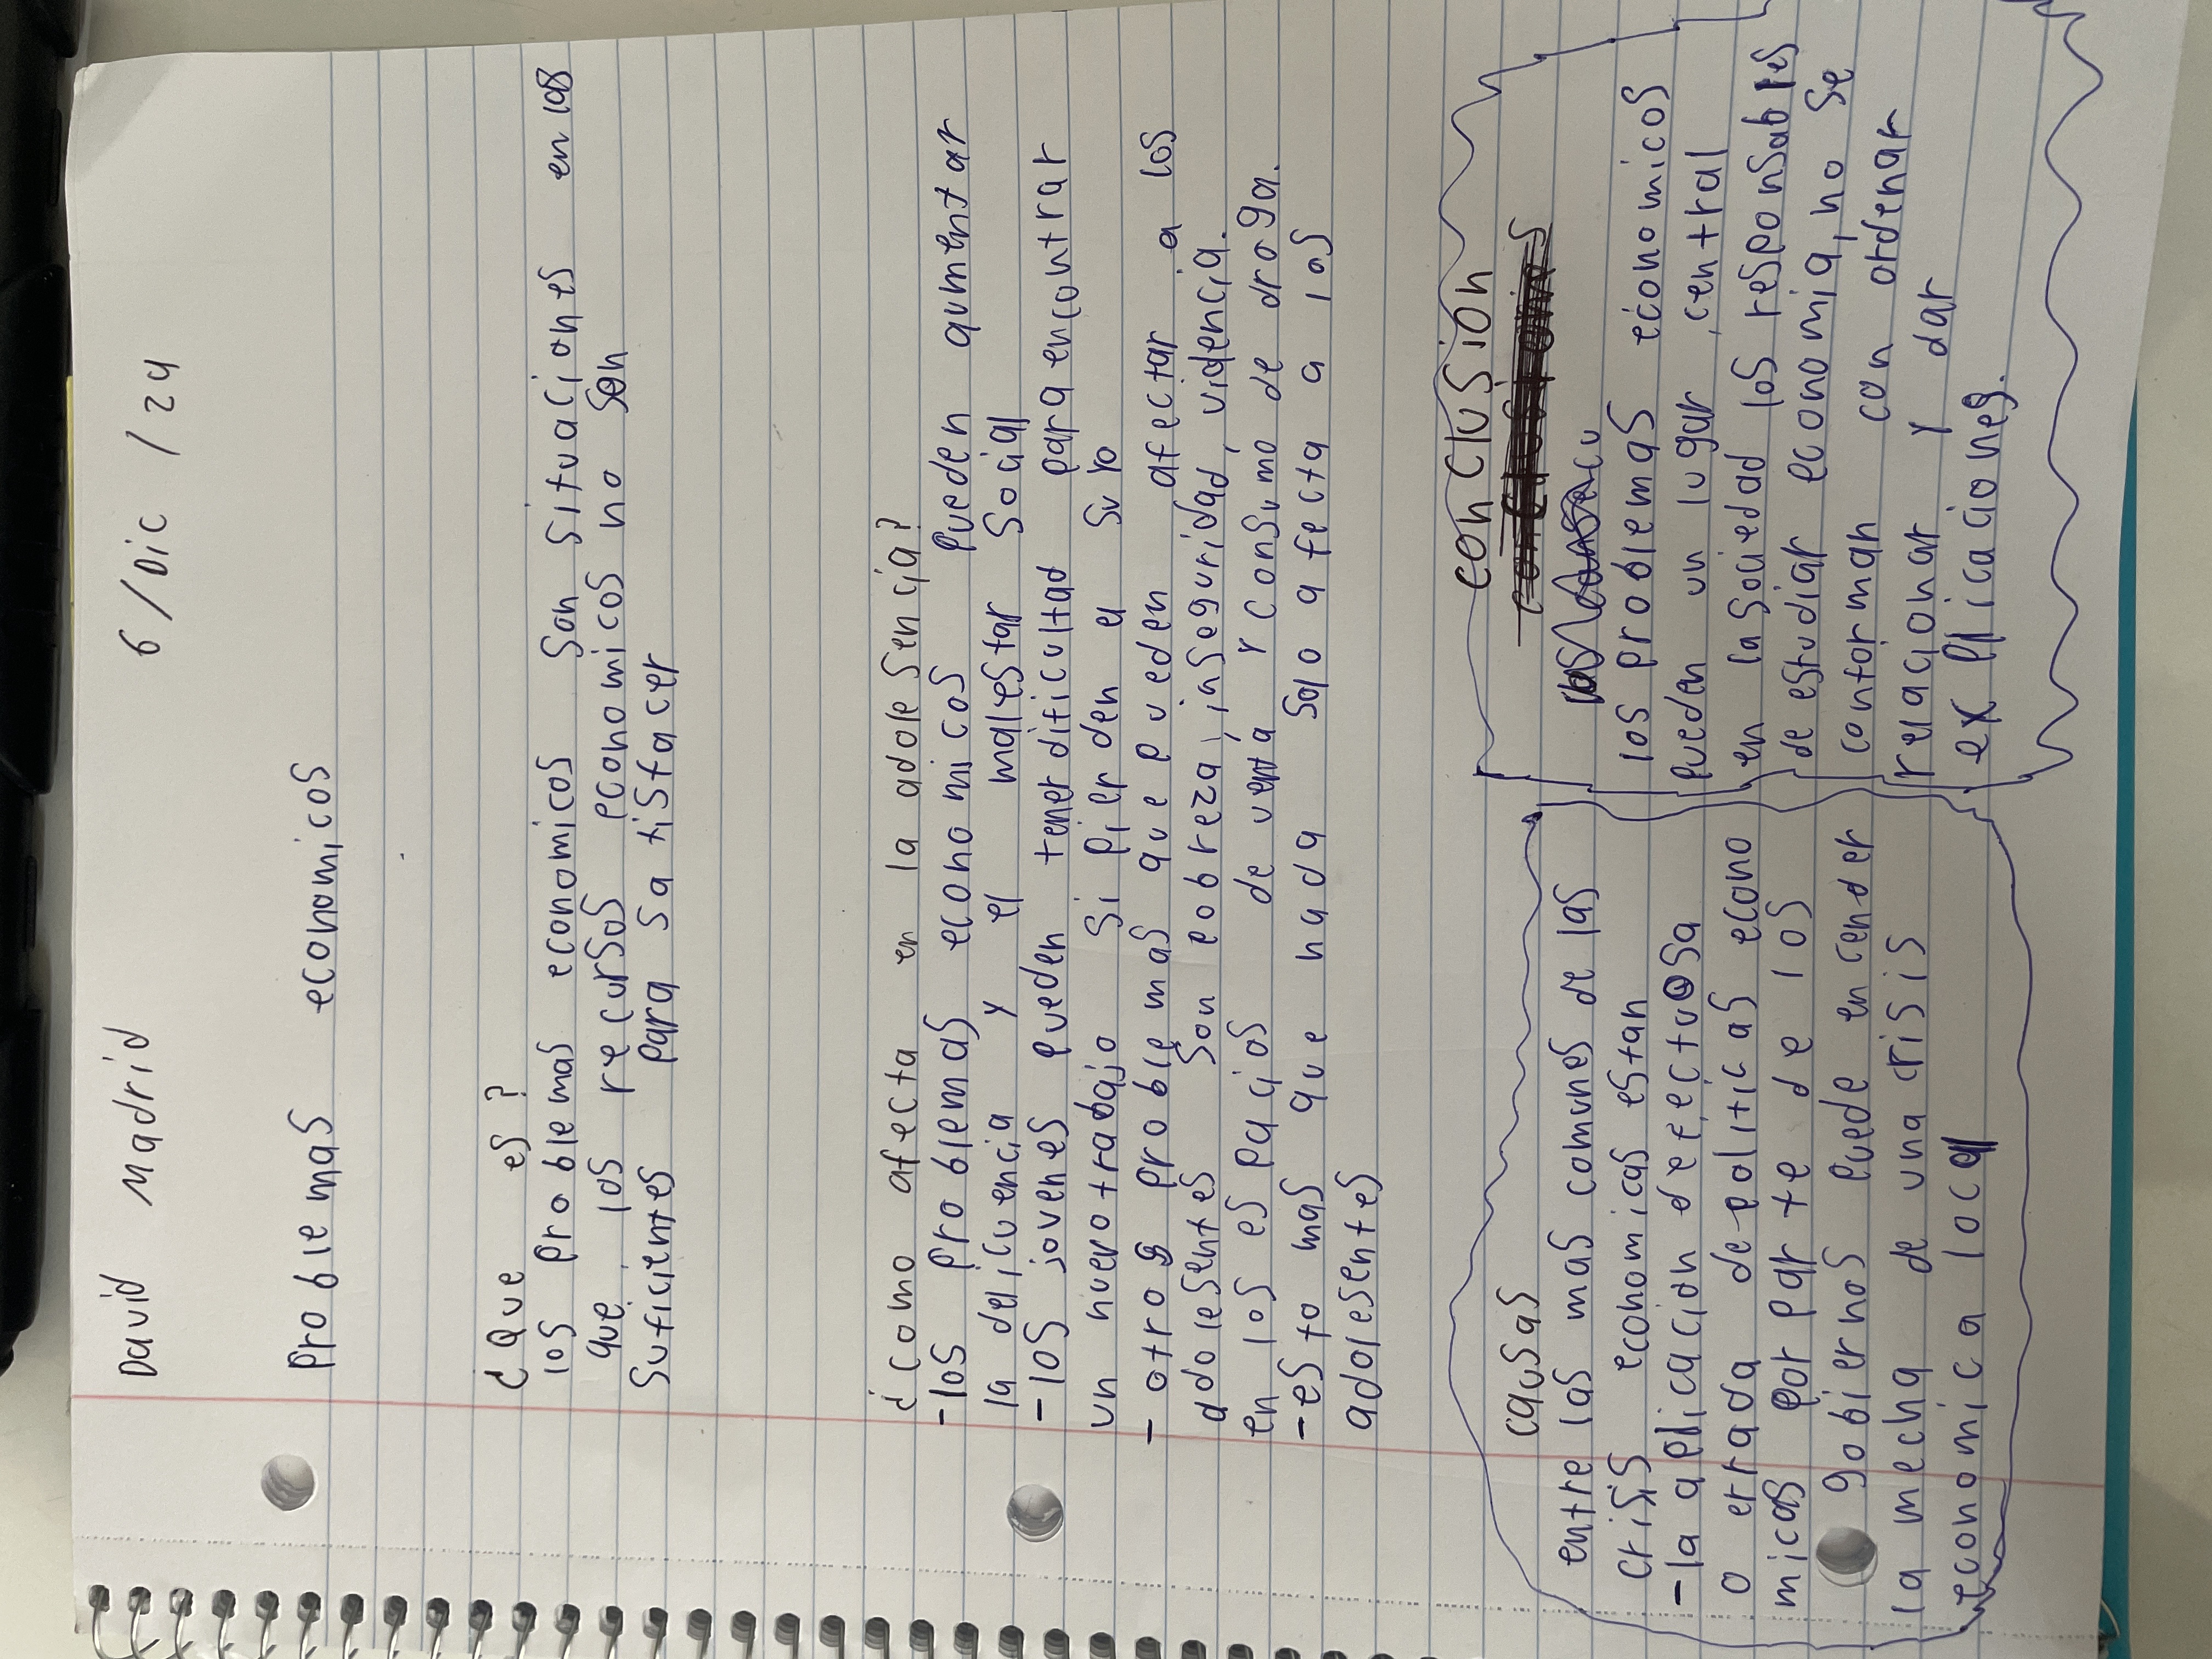 David Madrid 6/Dic/24
Problemas economicos
¿Que es?
los problemas economicos son situaciones en las
que los recursos economicos no son
suficientes para satisfacer
¿Como afecta en la adolesencia?
-los problemas economicos pueden aumentar
la delicuencia y el malestar social
-los jovenes pueden tener dificultad para encontrar
un nuevo trabajo si pierden el suyo
- otros problemas que pueden afectar a los
adolesentes son pobreza, inseguridad, videncia.
en los espacios de venta y consumo de droga.
-esto mas que nada solo afecta a los
adolesentes
causas
entre las mas comunes de las
crisis economicas estan
-la aplicacion defectuosa
o errada de politicas econo
micas por parte de los
gobiernos puede encender
la mecha de una crisis
economica local
conclusion
los problemas economicos
pueden un lugar central
en la sociedad los responsables
de estudiar economia, no se
conforman con ordenar
relacionar y dar
explicaciones.